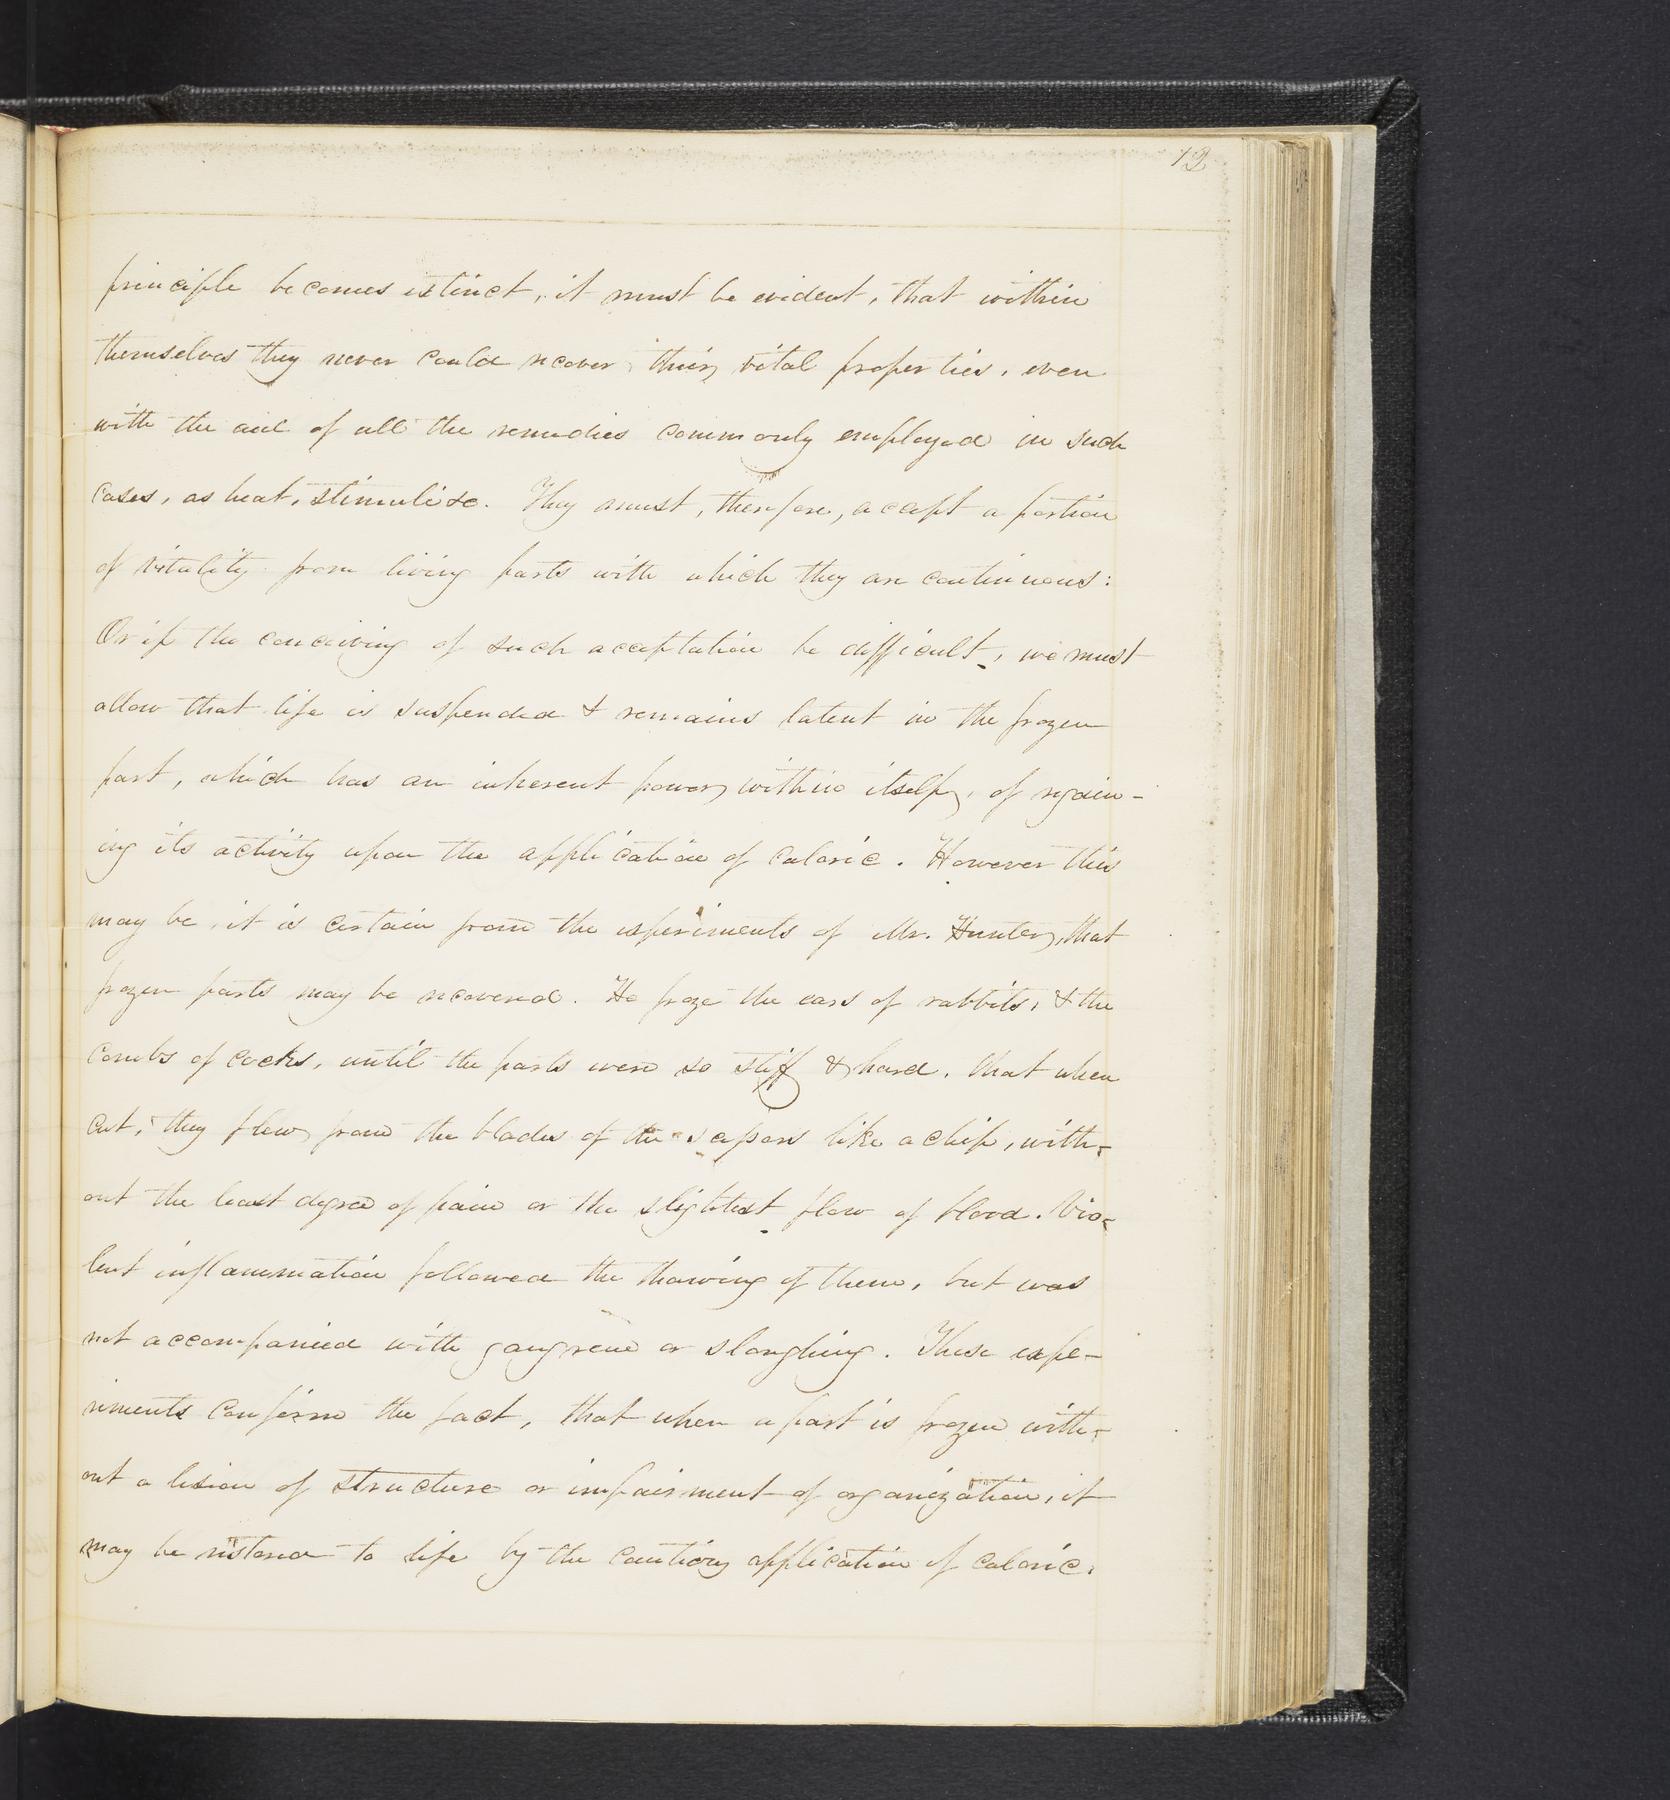 12
principle becomes extinct, it must be evident, that within
themselves they never could recover their vital properties, even
with the aid of all the remedies commonly employed in such
cases, as heat, stimuli &c. They must, therefore, accept a portion
of vitality from living parts with which they are continuous:
Or if the conceiving of such acceptation be difficult, we must
allow that life is suspended & remains latent in the frozen
part, which has an inherent power, within itself, of regain-
ing its activity upon the application of caloric. However this
may be, it is certain from the experiments of Mr. Hunter, that
frozen parts may be recovered. He froze the ears of rabbits, & the
combs of cocks, until the parts were so stiff & hard, that when
cut, they flew from the blades of the scissars like a chip, with-
out the least degree of pain or the slightest flow of blood. Vio-
lent inflammation followed the thawing of them, but was
not accompanied with gangrene or sloughing. These expe-
riments confirm the fact, that when a part is frozen with-
out a lesion of structure or impairment of organization, it
may be restored to life by the cautious application of caloric.